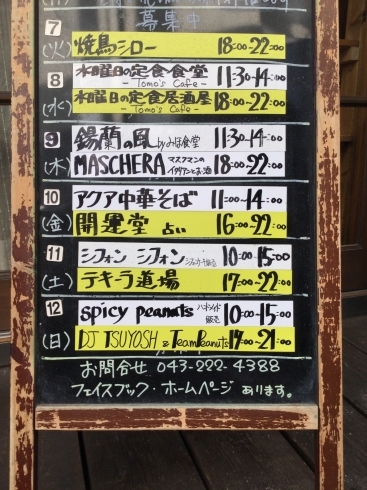 募集中
7
(火) 焼鳥シロー 18:00~22:00
8 水曜日の定食食堂 11:30~14:00
- Tomo's Cafe -
(水) 水曜日の定食居酒屋 18:00~22:00
- Tomo's Cafe -
9 錫蘭の風 byみほ食堂 11:30~14:00
(木) MASCHERA マスクマンのイタリアンとお酒 18:00~22:00
10 アクア中華そば 11:00~14:00
(金) 開運堂 占い 16:00~22:00
11 シフォン シフォン 10:00~15:00
(土) テキーラ道場 17:00~22:00
12 spicy peanuts ハンドメイド販売 10:00~15:00
(日) DJ TSUYOSHI & TeamPeanuts 17:00~21:00
お問合せ 043-222-4388
フェイスブック・ホームページ あります。